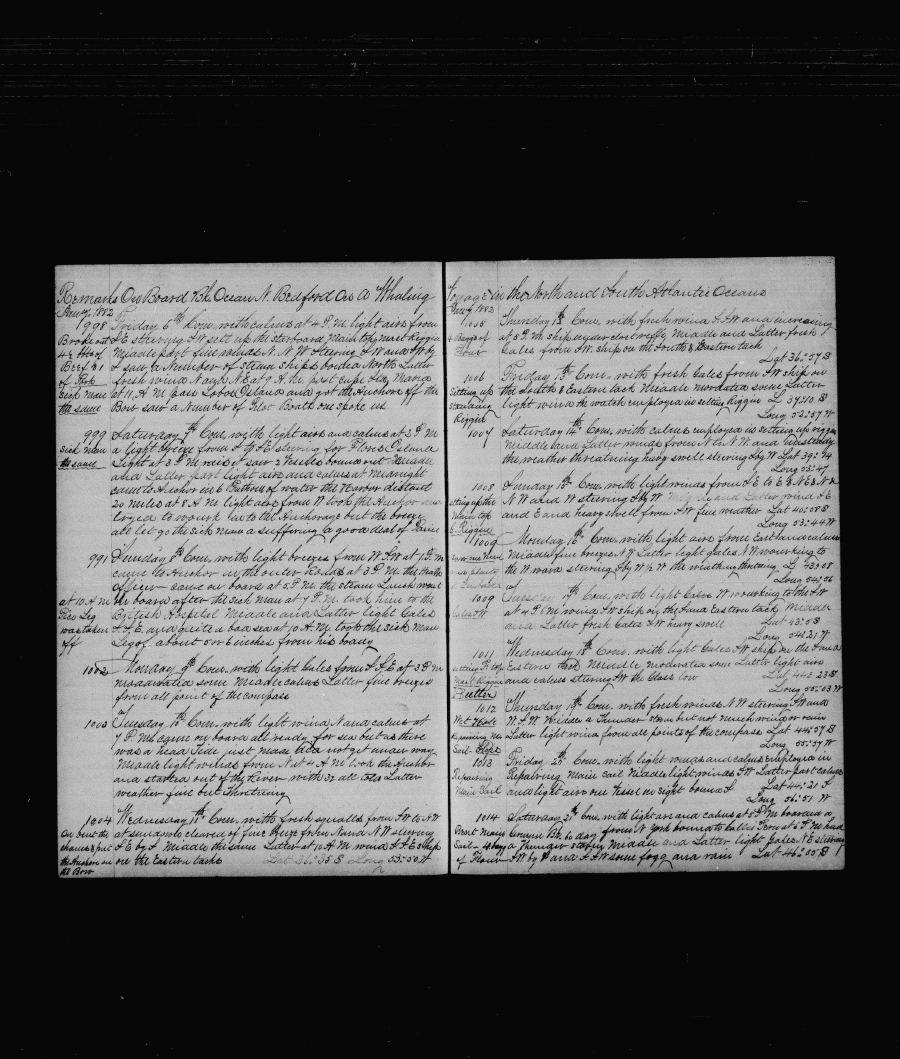 Remarks On Board Bk Ocean N. Bedford On A Whaling
Jany 1882
998 Friday 6th Com. with calms at 4 P.M. light airs from
Broke out S E steering S W sett up the starboard Main top mast Riggin
4½ bbls of Middle part fine winds N. N. W Steering S W and S W by
Beef & 1 S saw a Number of steam ships bound North Latter
of Pork fresh wind N by N E at 9 A. M. past cape Sta Maria
Sick man at 11 A M pass Lobos Island and got the Anchors off the
the same Bow saw a Number of Pilot Boats one spoke us
999 Saturday 7th Com. with light airs and calms at 3 P. M
Sick man a light breeze from S W S steering for Flores Island
the same Light at 3 P.M. saw 2 vessels bound out Middle
and Latter part light airs and calms at Midnight
came to Anchor in 6 Fathoms of water the Harbor distant
20 miles at 8 A. M light airs from W took the Anchor
to work up to the Anchorage but the breeze
let go the sick man a suffering a good deal of Paine
991 Sunday 8th Com. with light breezes from W S W at 1 P. M
came to Anchor in the outer Roads at 3 P.M. the Health
Officer came on board at 5 P.M. the steam Launch went
at 10 A M on board after the sick man at 7 P.M. took him to the
His Leg British Hospital Middle and Latter light Gales
was taken S S. E. and quite a bad sea at 10 A. M. took the sick Man
off Leg of about 5 or 6 inches from his body
1002 Monday 9th Com. with light Gales from S. S. E at 3 P. M
moderated some Middle calms Latter fine breezes
from all point of the compass
1003 Tuesday 10th Com. with light wind N and calms at
7 P. M. came on board all ready for sea but as there
was a head Tide just made did not get under way
Middle light winds from N at 4 A. M took the Anchor
and started out of the River with 32 all old Latter
weather fine but Thretning
1004 Wednesday 11th Com. with fresh squalls from S W to N W
Cut out the at sundown cleared of fine breeze from N and N W steering
chains & put S E by S Middle the same Latter at 10 A. M wind S S E ship
the Anchors on on the Eastern tacks Lat 36°35 S Long 53°50 W
the Bow
Voyage in the North and South Atlantic Oceans
Jany 1882
1005 Thursday 12th Com. with fresh wind S S W and increasing
Bags of at 5 P. M ship under close reefs Middle and Latter fresh
Flour Gales from S W. ship on the South & Eastern tack
Lat 36°57 S
1006 Friday 13th Com. with fresh Gales from S W ship on
Sitting up the South & Eastern tack Middle moderated some Latter
light wind the watch employed in setting Riggin L 37°10 S
Riggin Long 52°57 W
1007 Saturday 14th Com. with calms employed in setting up riggin
Middle and Latter winds from N to N. W. and unsteady
the weather threatning heavy swell steering S by W Lat 39°24
Long 53°47
1008 Sunday 15th Com. with light winds from S E to E & N E & N &
N W and W steering S by W Middle and Latter wind S E
Main top and E and heavy swell from S W fine weather Lat 40°58 S
Riggin Long 53°44 W
1009 Monday 16th Com. with light airs from East and calms
Middle fine breezes N. W Latter light gales N. W. working to
the W ward steering S by W ½ W the weather thretning L 43°08
Long 54°56
1009 Tuesday 17th Com. with light Gales W working to the S W
at 4 P M wind S W ship on the S and Eastern tack Middle
and Latter fresh Gales S W heavy swell Lat 43°05 S
Long 54°21 W
1011 Wednesday 18th Com. with light Gales S W ship on the S and
Eastern tack Middle moderated some Latter light airs
and calms steering S W the Glass low Lat 44°23 S
Butter Long 55°03 W
1012 Thursday 19th Com. with fresh winds N W steering S W and
Wet Hold W. S. W Middle a Thunder storm but not much wind or rain
Latter light wind from all points of the compass Lat 44°57 S
Long 55°57 W
1013 Friday 20th Com. with light winds and calms employed in
Repairing Repairing Main Sail Middle light winds S W Latter part calms
Main Sail and light airs one Vessel in sight bound S Lat 44°21 S
Long 56°51 W
1014 Saturday 21st Com. with light airs and calms at 5 P. M boarded a
Bent Main German Bk 60 days from N York bound to Calleo Peru at 6 P. M had
Sail a Thunder storm Middle and Latter light Gales N. E steering
of Flour S W by S and S S W some fogg and rain Lat 46°55 S